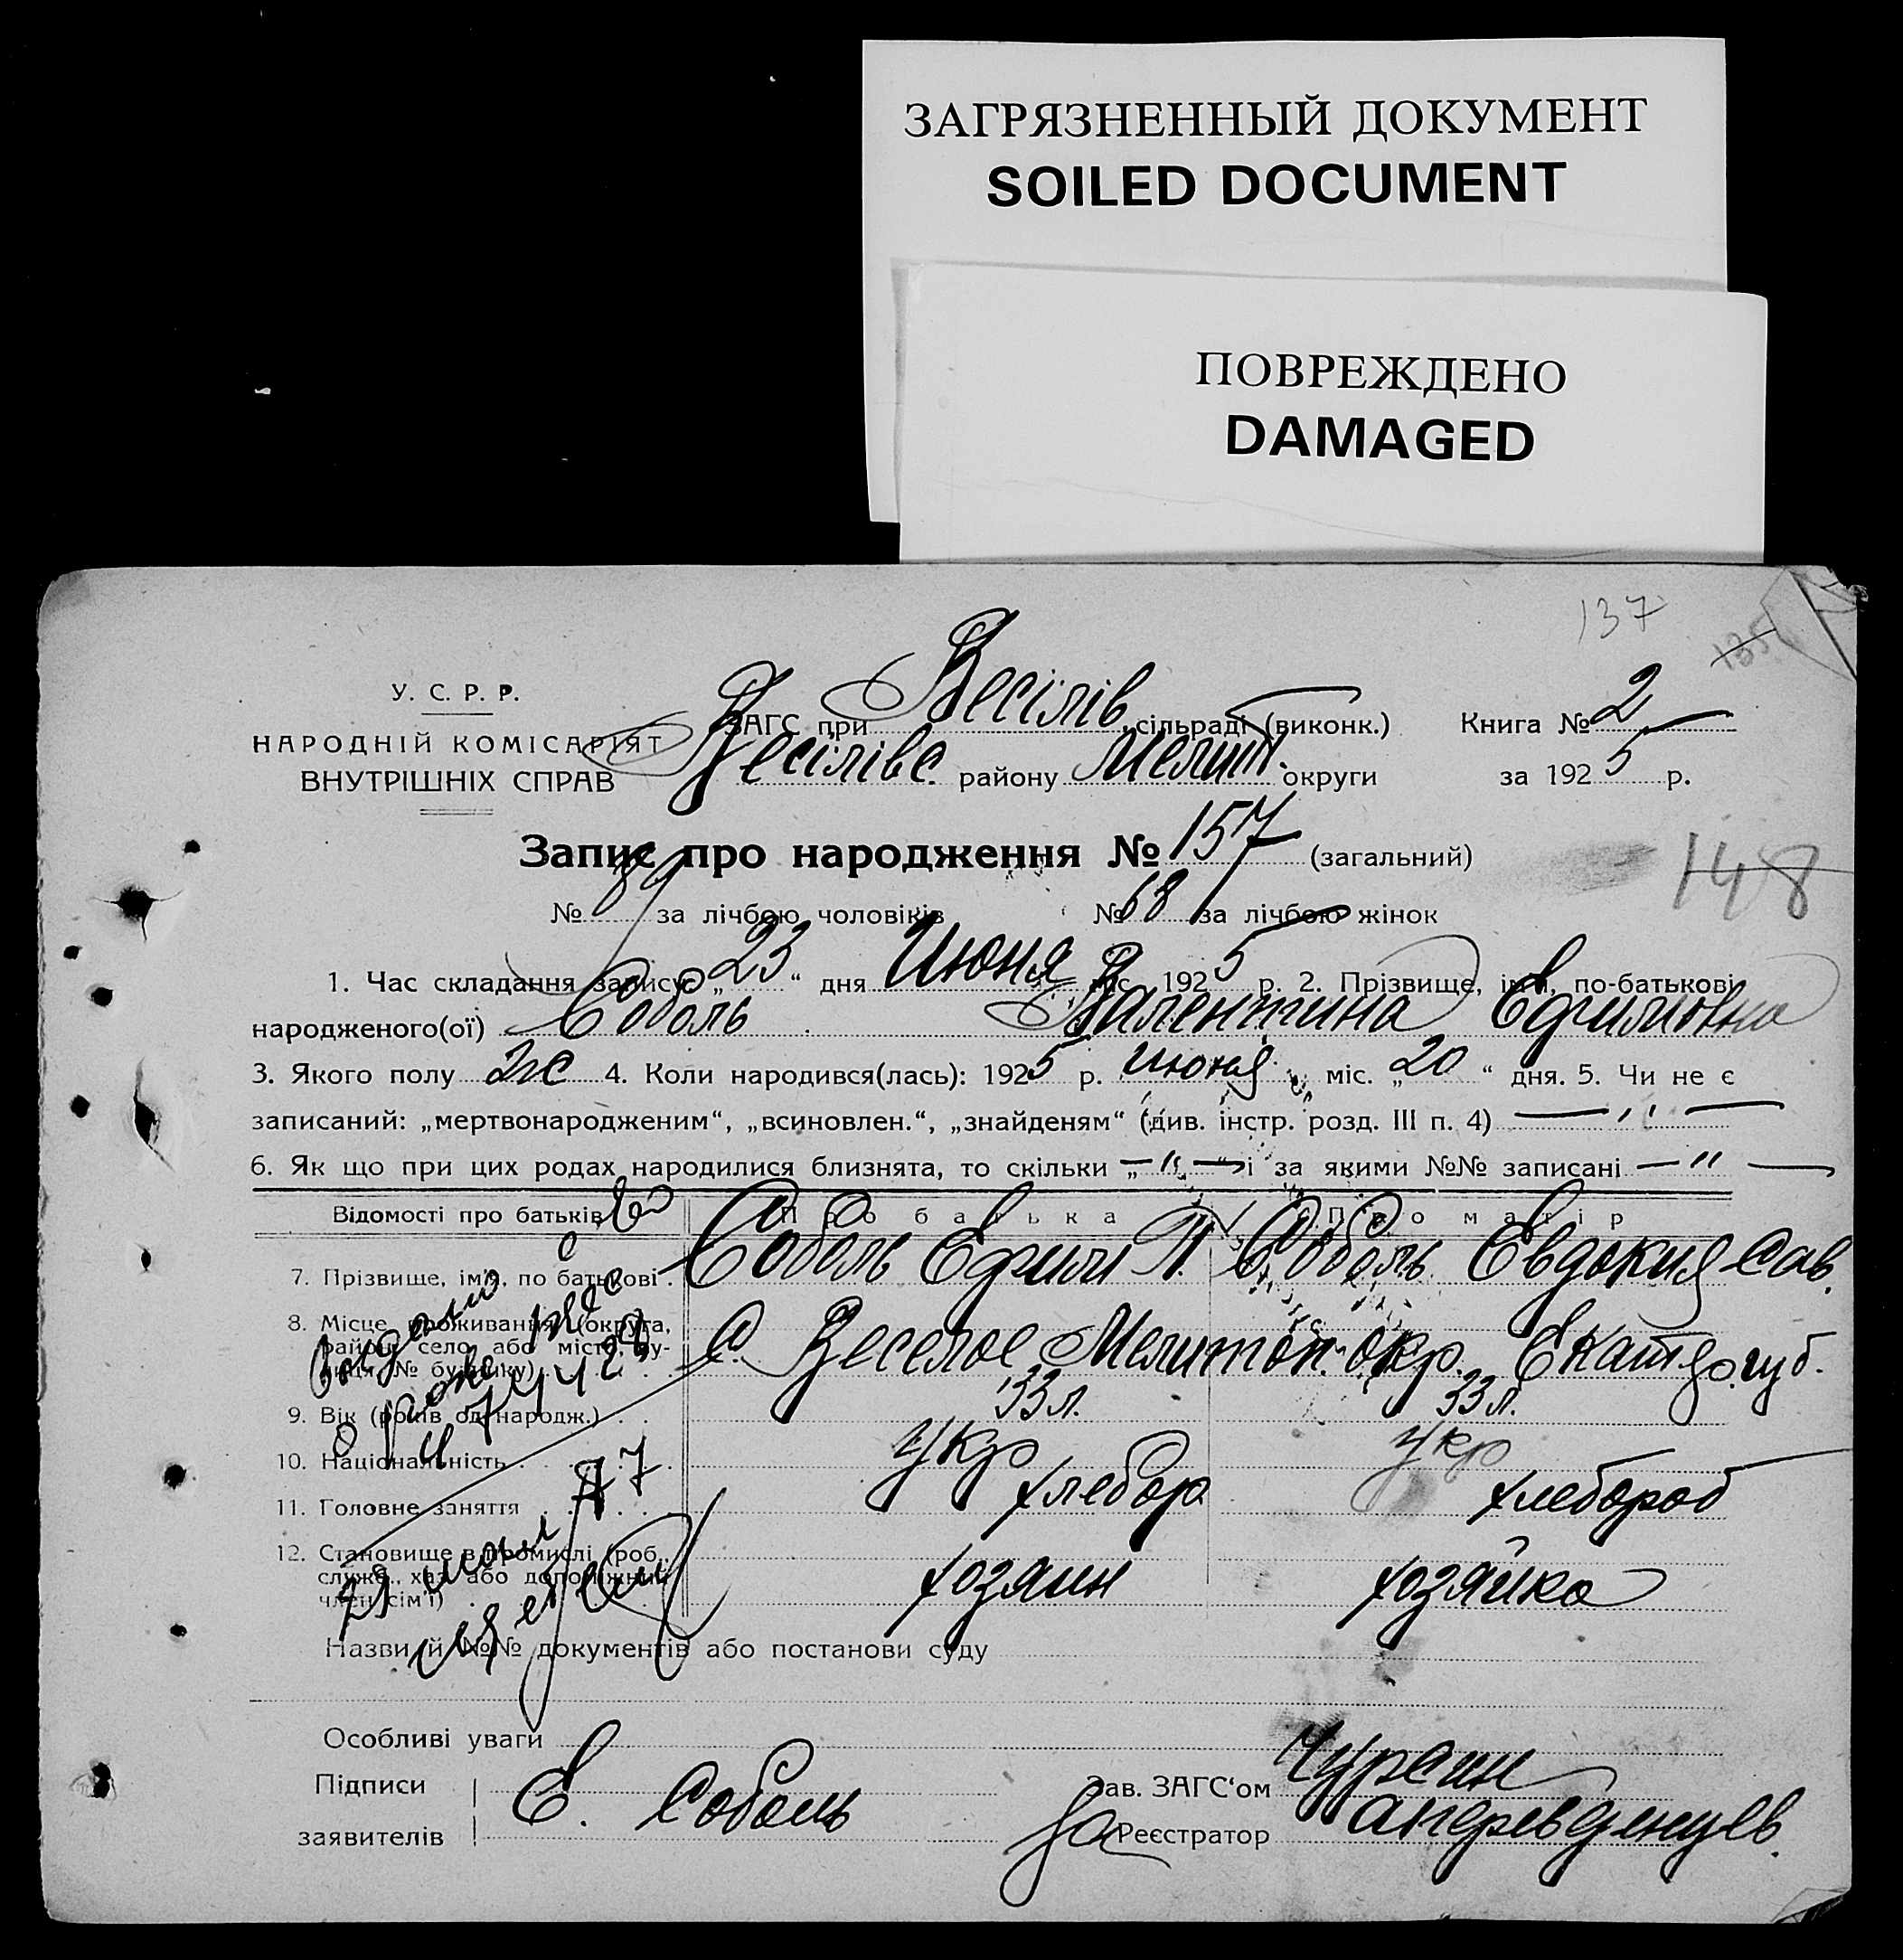 ЗАГРЯЗНЕННЫЙ ДОКУМЕНТ
SOILED DOCUMENT
ПОВРЕЖДЕНО
DAMAGED
137
У. С. Р. Р.
НАРОДНІЙ КОМІСАРІЯТ
ВНУТРІШНІХ СПРАВ
ЗАГС при Весілів сільраді (виконк.) Книга № 2
Весілівс. району Мелит. округи за 1925 р.
Запис про народження № 157 (загальний)
148
№ 89 за лічбою чоловіків № 68 за лічбою жінок
1. Час складання запису: „23“ дня Июня міс. 1925 р. 2. Прізвище, ім'я, по-батькові
народженого(ої) Соболь Валентина Ефимовна
3. Якого полу ж 4. Коли народився(лась): 1925 р. июня міс. „20“ дня. 5. Чи не є
записаний: „мертвонародженим“, „всиновлен.“, „знайденям“ (див. інстр. розд. III п. 4) — „ —
6. Як що при цих родах народилися близнята, то скільки „— " —“ і за якими №№ записані — " —
Відомості про батьків Про батька Про матір
7. Прізвище, ім'я, по батькові . Соболь Ефим П. Соболь Евдокия Сав.
8. Місце проживання (округа,
район, село або місто, ву-
лиця, № будинку) С. Веселое Мелитоп. окр. Екат. губ.
9. Вік (років од народж.) . . 33 л. 33 л.
10. Національність укр укр
11. Головне заняття хлебор хлебороб
12. Становище в промислі (роб.,
служб., хаз. або допоміжний
член сім'ї) хозяин хозяйка
Назви й №№ документів або постанови суду
Особливі уваги
Підписи
заявителів Е. Соболь
Зав. ЗАГС‘ом Чурсин
За Реєстратор